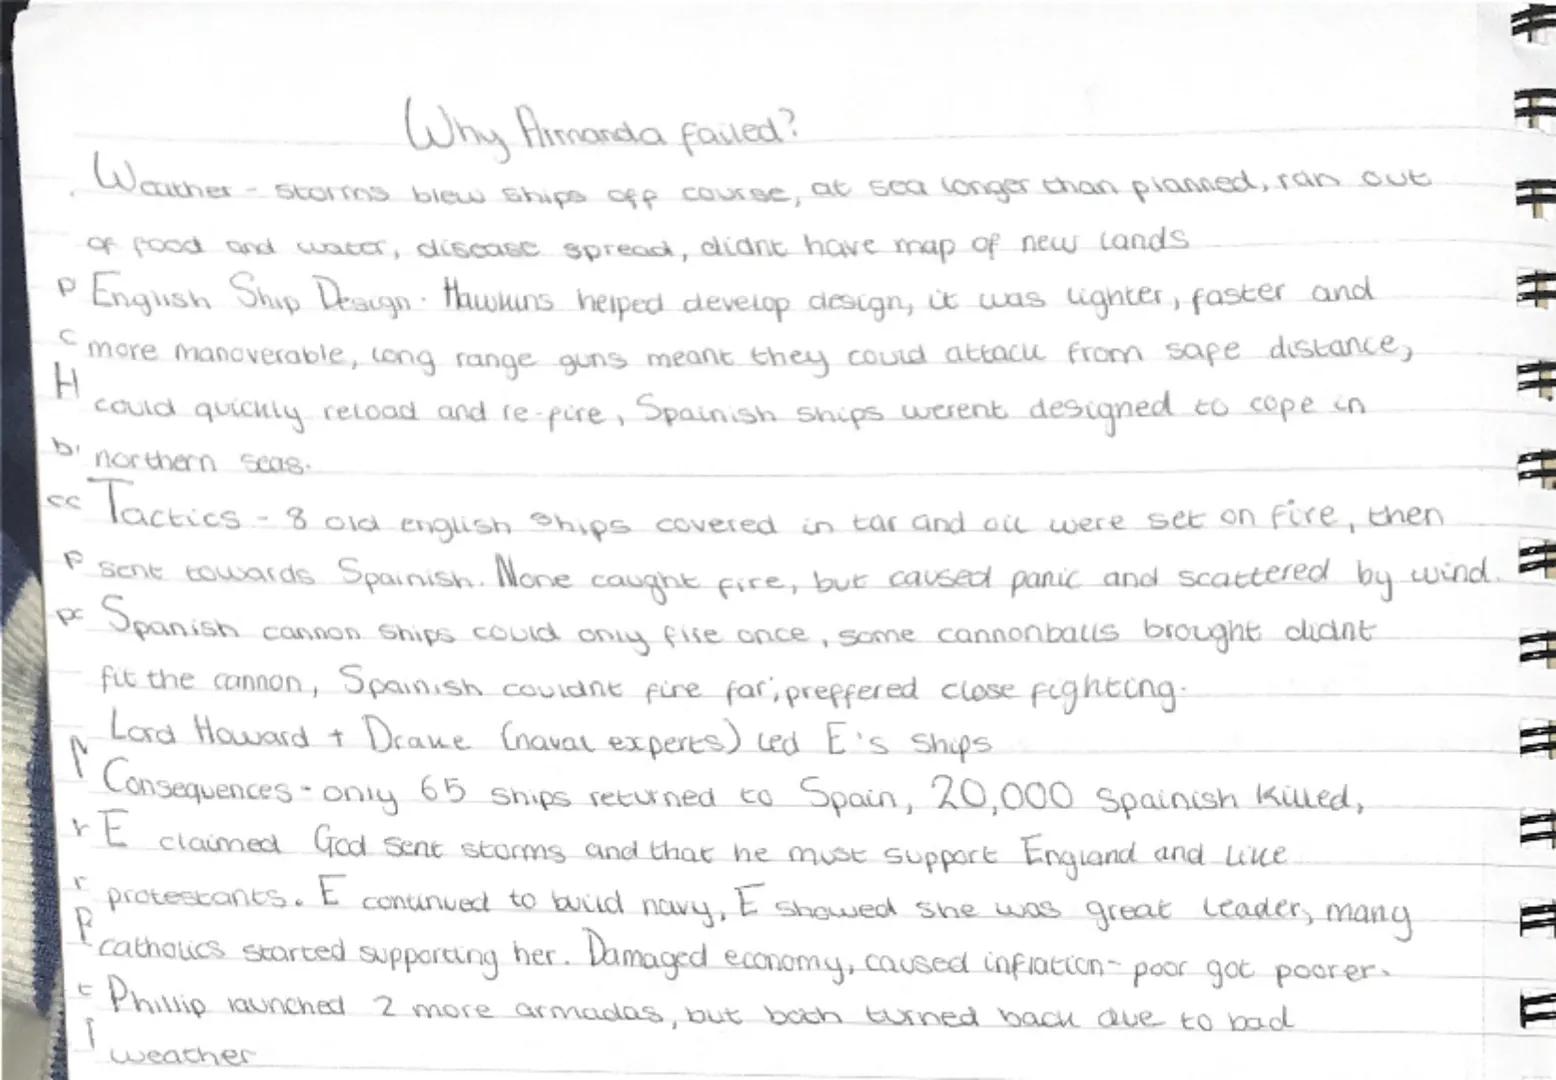 Why Armanda failed?
Weather - storms blew ships off course, at sea longer than planned, ran out
of food and water, disease spread, didnt have map of new lands
P English Ship Design. Hawkins helped develop design, it was lighter, faster and
c more manoverable, long range guns meant they could attack from safe distance,
H could quickly reload and re-fire, Spainish ships werent designed to cope in
b northern seas.
cc Tactics - 8 old english ships covered in tar and oil were set on fire, then
P sent towards Spainish. None caught fire, but caused panic and scattered by wind.
pc Spanish cannon ships could only fire once, some cannonballs brought didnt
fit the cannon, Spainish couldnt fire far, preffered close fighting.
Lord Howard + Drake (naval experts) led E's ships
Consequences - only 65 ships returned to Spain, 20,000 Spainish killed,
r E claimed God sent storms and that he must support England and like
r protestants. E continued to build navy, E showed she was great leader, many
P catholics started supporting her. Damaged economy, caused inflation - poor got poorer.
t Phillip launched 2 more armadas, but both turned back due to bad
weather